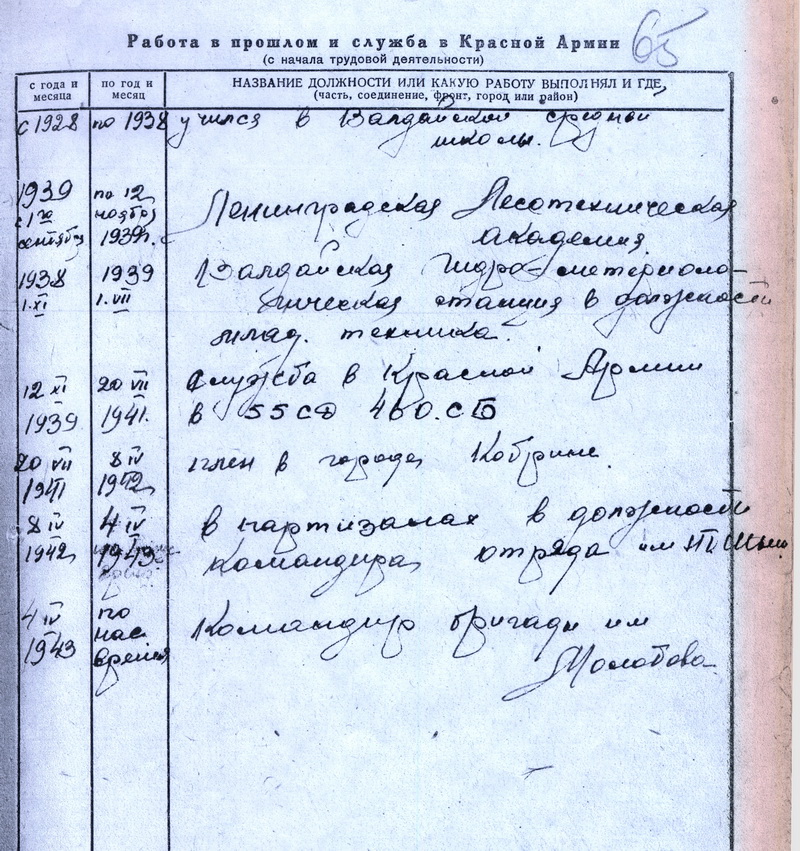 65
Работа в прошлом и служба в Красной Армии
(с начала трудовой деятельности)
с года и месяца
по год и месяц
НАЗВАНИЕ ДОЛЖНОСТИ ИЛИ КАКУЮ РАБОТУ ВЫПОЛНЯЛ И ГДЕ,
(часть, соединение, фронт, город или район)
с 1928 по 1938 учился в Валдайской средней
школы.
1939 по 12
с 1го ноября Ленинградская Лесотехническая
сентября 1939г. академия.
1938 1939 Валдайская Гидро-метериоло-
1.XI 1.VII гическая станция в должности
млад. техника.
12 XI 20 VII Служба в Красной Армии
1939 1941. в 55 СД 460. СБ
20 VII 8 IV плен в города Кобрине.
1941 1942
8 IV 4 IV в партизанах в должности
1942 1943 командира отряда им
4 IV по Командир бригады им
1943 нас. Молотова
время